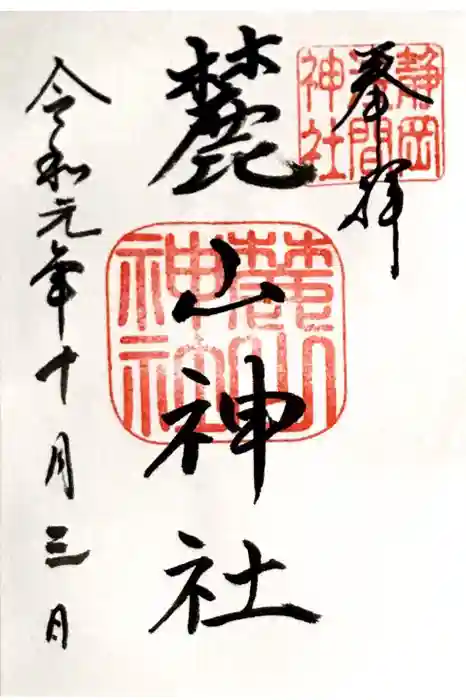 奉拝
静岡
浅間
神社
麓山神社
麓山
神社
令和元年十月三日